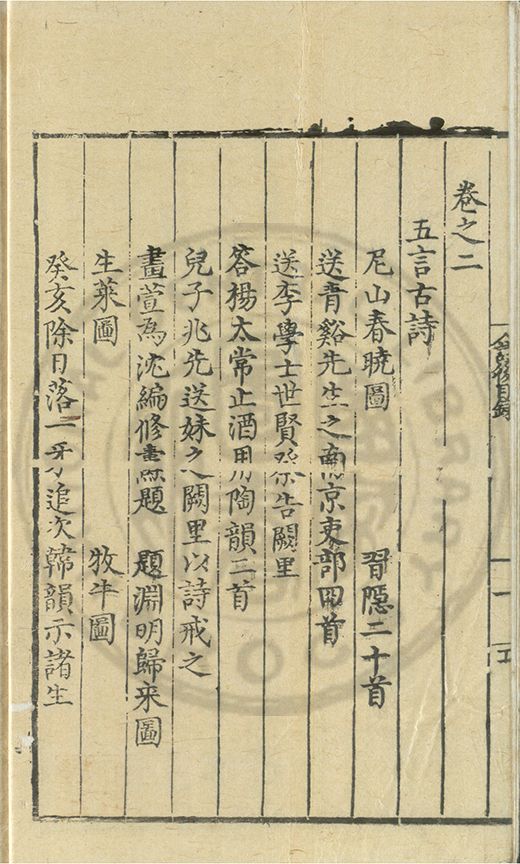 卷之二
五言古詩
尼山春曉圖　習隱二十首
送青谿先生之南京吏部四首
送李學士世賢祭告闕里
答楊太常止酒用陶韻二首
兒子兆先送妹之闕里以詩戒之
畫萱為沈編修燾題　題淵明歸來圖
生菜圖　牧牛圖
癸亥除日落一牙追次韓韻示諸生